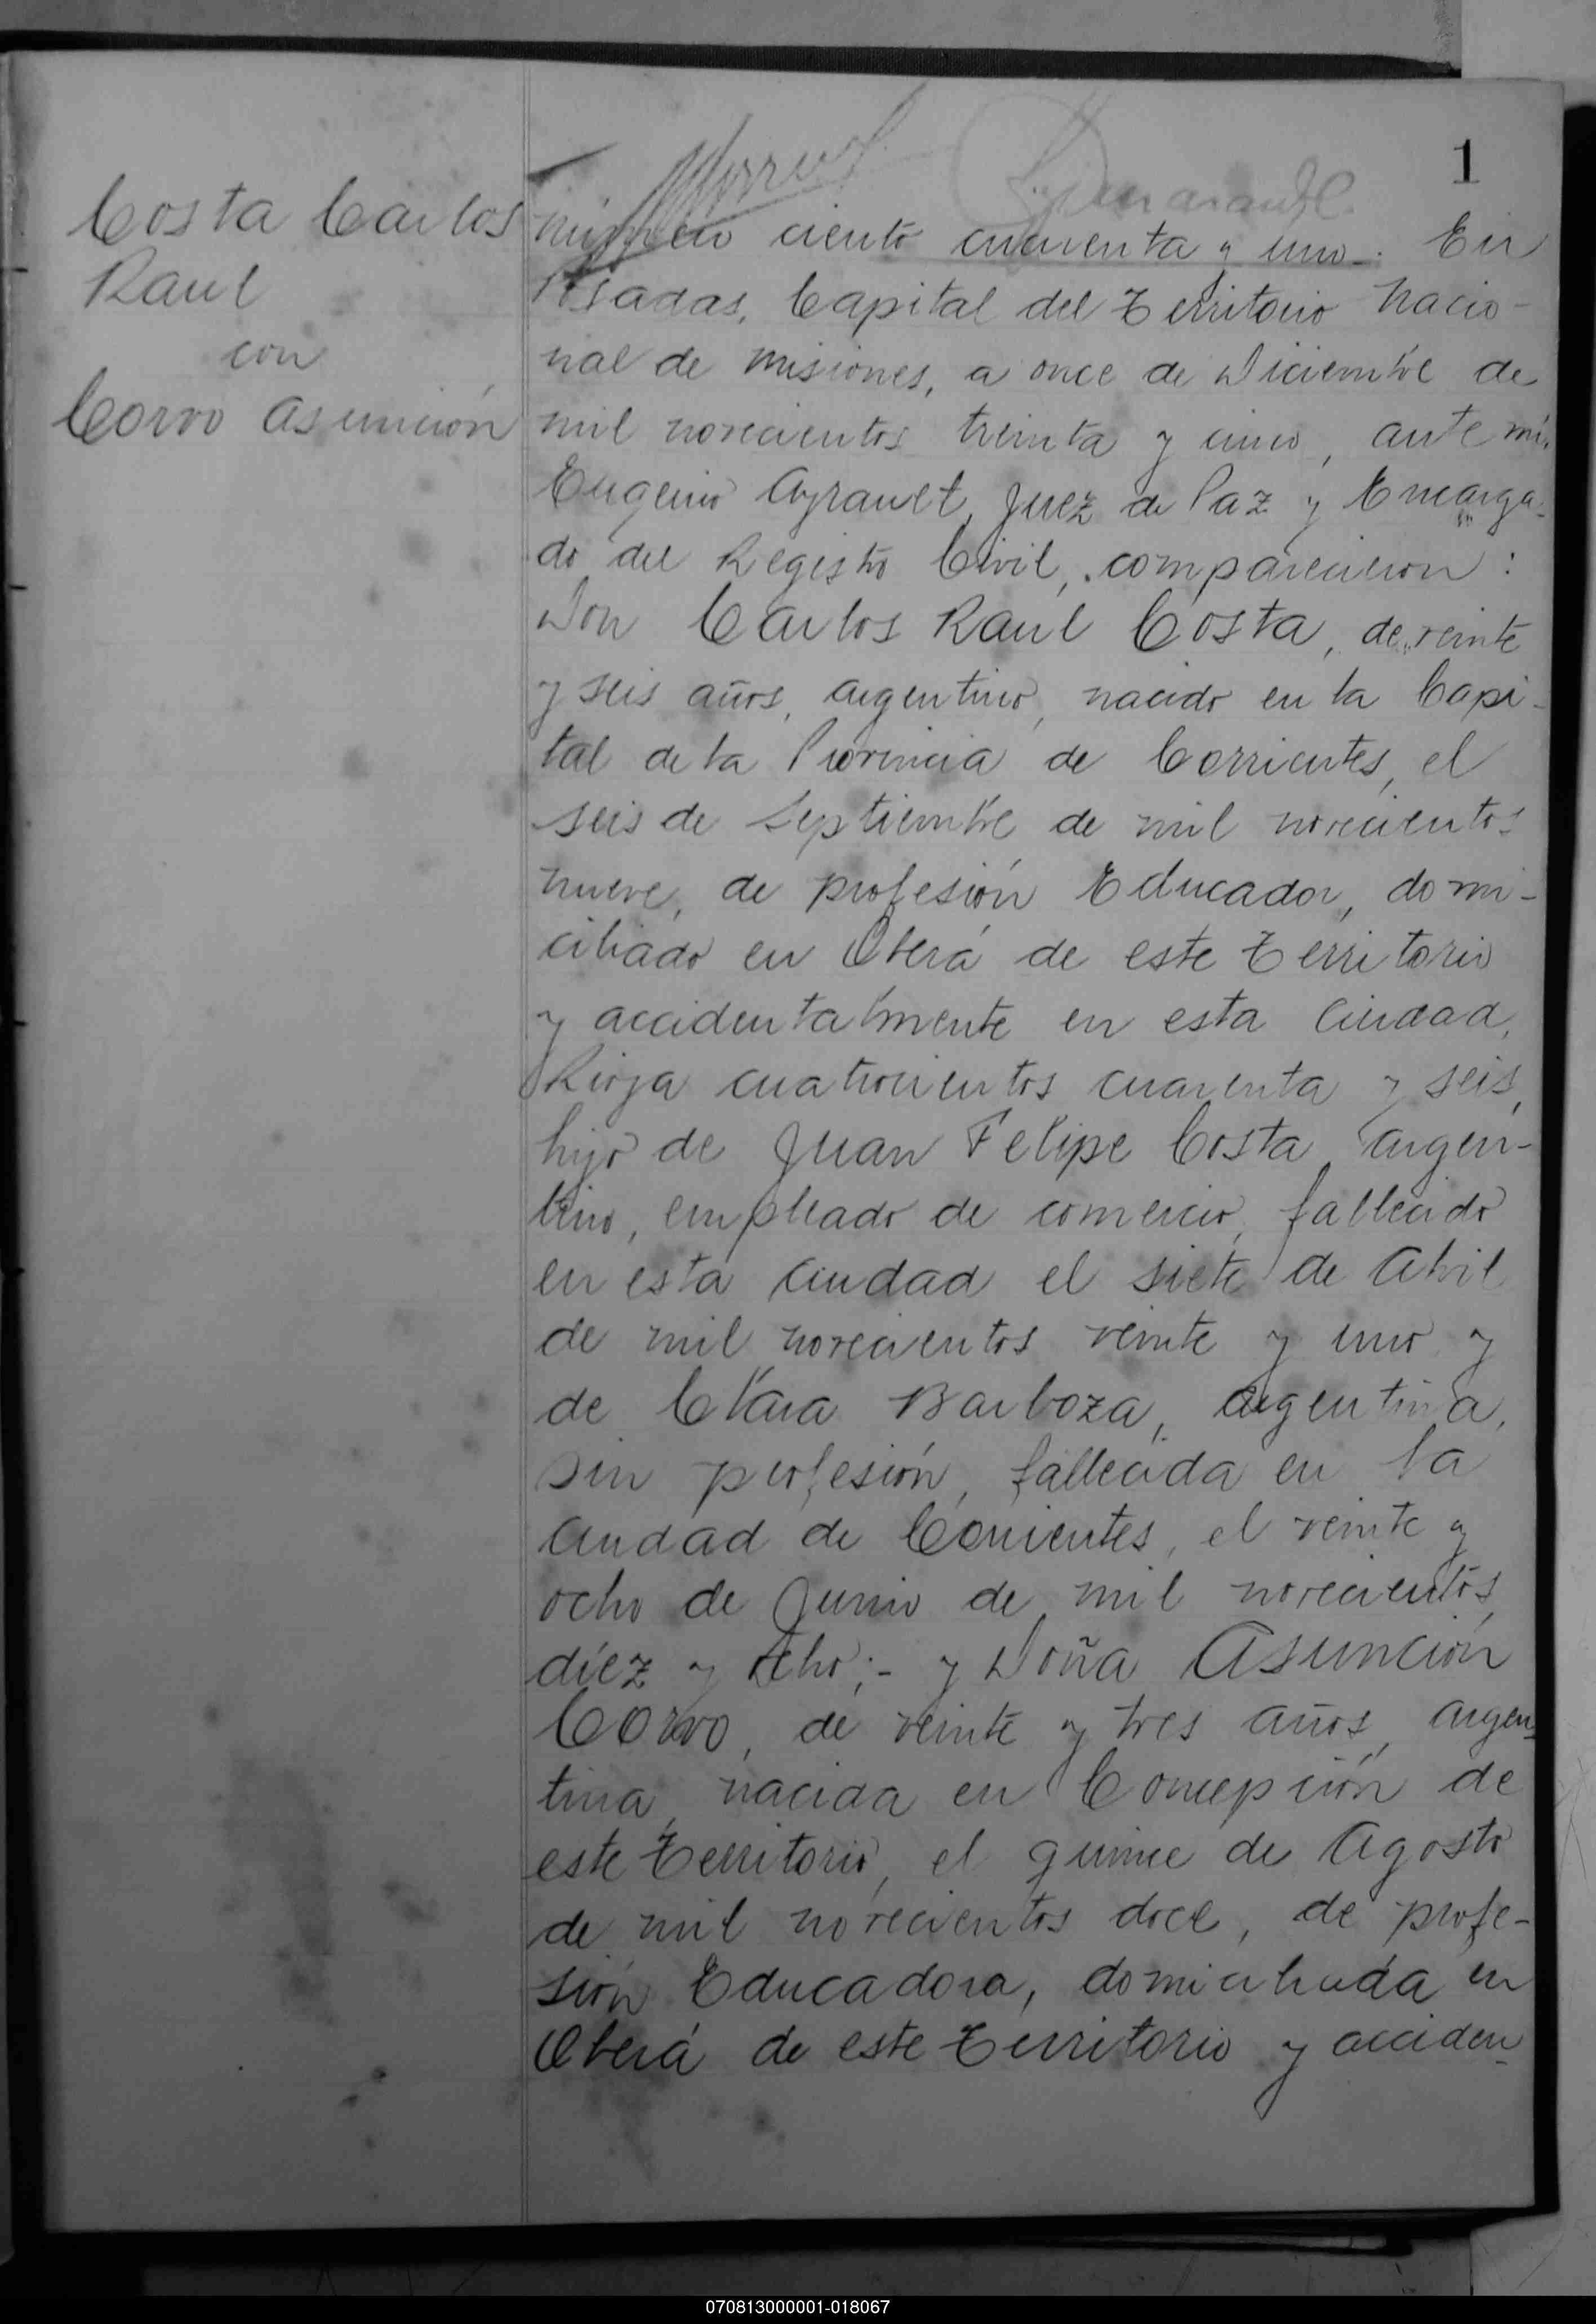 1
Costa Carlos
Raul
con
Corvo Asunción
Número ciento cuarenta y uno. En
Posadas, Capital del Territorio Nacio-
nal de Misiones, a once de Diciembre de
mil novecientos treinta y cinco, ante mí,
Eugenio Ayrault, Juez de Paz y Encarga-
do del Registro Civil, comparecieron:
Don Carlos Raul Costa, de veinte
y seis años, argentino, nacido en la Capi-
tal de la Provincia de Corrientes, el
seis de Septiembre de mil novecientos
nueve, de profesión Educador, domi-
ciliado en Oberá de este Territorio
y accidentalmente en esta Ciudad,
Rioja cuatrocientos cuarenta y seis,
hijo de Juan Felipe Costa, argen-
tino, empleado de comercio, fallecido
en esta Ciudad el siete de Abril
de mil novecientos veinte y uno y
de Clara Barboza, argentina,
sin profesión, fallecida en la
Ciudad de Corrientes, el veinte y
ocho de Junio de mil novecientos
diez y ocho;- y Doña Asunción
Corvo, de veinte y tres años, argen-
tina, nacida en Concepción de
este Territorio, el quince de Agosto
de mil novecientos doce, de profe-
sión Educadora, domiciliada en
Oberá de este Territorio y acciden-
070813000001-018067